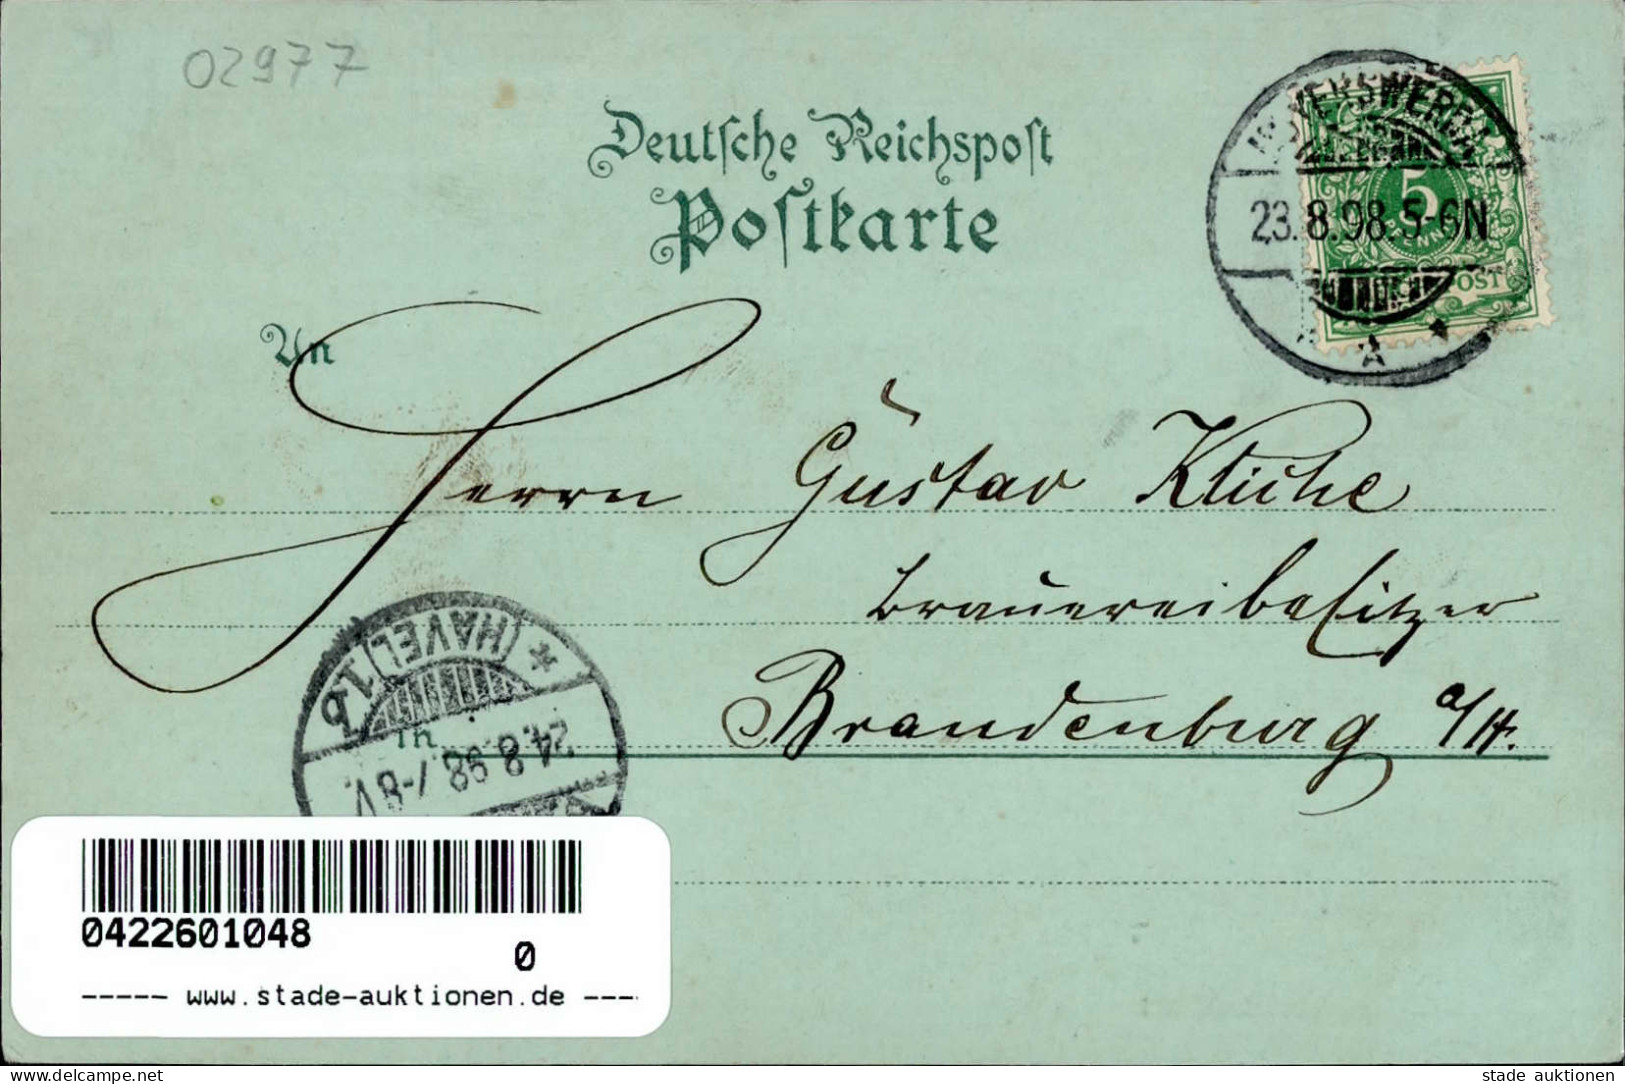 02977
Deutsche Reichspost
Postkarte
HOYERSWERDA
23.8.98.5-6N
A
5
PFENNIG
POST
An
Herrn Gustav Kluche
Brauereibesitzer
in Brandenburg a/H.
(HAVEL) 1 b
24.8.98.7-8V.
0422601048
0
----- www.stade-auktionen.de ---
www.delcampe.net
stade auktionen